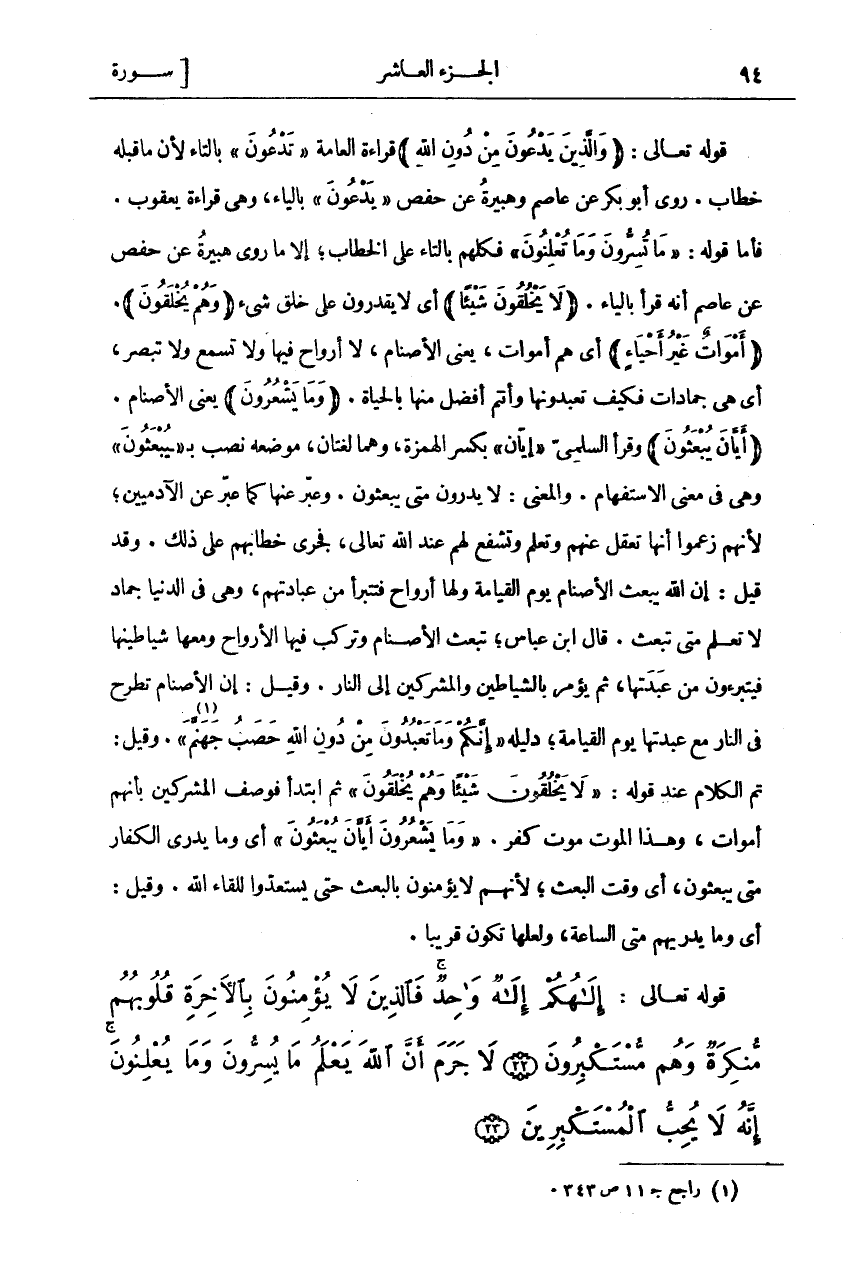 ٩٤ الجـــزء العـــاشر [ ســـورة
قوله تعـالى : ﴿ وَالَّذِينَ يَدْعُونَ مِنْ دُونِ اللهِ ﴾ قراءة العامة « تَدْعُونَ » بالتاء لأن ماقبله
خطاب . روى أبو بكر عن عاصم وهبيرةُ عن حفص « يَدْعُونَ » بالياء، وهى قراءة يعقوب .
فأما قوله : « مَا تُسِرُّونَ وَمَا تُعْلِنُونَ» فكلهم بالتاء على الخطاب؛ إلا ما روى هبيرةُ عن حفص
عن عاصم أنه قرأ بالياء . ﴿ لَا يَخْلُقُونَ شَيْئًا ﴾ أى لايقدرون على خلق شىء ﴿ وَهُمْ يُخْلَقُونَ ﴾.
﴿ أَمْوَاتٌ غَيْرُ أَحْيَاءٍ ﴾ أى هم أموات ، يعنى الأصنام ، لا أرواح فيها ولا تسمع ولا تبصر،
أى هى جمادات فكيف تعبدونها وأنتم أفضل منها بالحياة . ﴿ وَمَا يَشْعُرُونَ ﴾ يعنى الأصنام .
﴿ أَيَّانَ يُبْعَثُونَ ﴾ وقرأ السلمىّ «إيّان» بكسر الهمزة، وهما لغتان، موضعه نصب بـ«ـيُبْعَثُونَ»
وهى فى معنى الاستفهام . والمعنى : لا يدرون متى يبعثون . وعبّر عنها كما عبّر عن الآدميين؛
لأنهم زعموا أنها تعقل عنهم وتعلم وتشفع لهم عند الله تعالى، فجرى خطابهم على ذلك . وقد
قيل : إن الله يبعث الأصنام يوم القيامة ولها أرواح فتتبرأ من عبادتهم، وهى فى الدنيا جماد
لا تعـلم متى تبعث . قال ابن عباس؛ تبعث الأصـنام وتركب فيها الأرواح ومعها شياطينها
فيتبرءون من عَبَدَتها، ثم يؤمر بالشياطين والمشركين إلى النار . وقيـل : إن الأصنام تطرح
فى النار مع عبدتها يوم القيامة؛ دليله« إِنَّكُمْ وَمَا تَعْبُدُونَ مِنْ دُونِ اللهِ حَصَبُ جَهَنَّمَ» (١) . وقيل:
تم الكلام عند قوله : « لَا يَخْلُقُونَ شَيْئًا وَهُمْ يُخْلَقُونَ » ثم ابتدأ فوصف المشركين بأنهم
أموات ، وهـذا الموت موت كفر . « وَمَا يَشْعُرُونَ أَيَّانَ يُبْعَثُونَ » أى وما يدرى الكفار
متى يبعثون، أى وقت البعث ؛ لأنهـم لايؤمنون بالبعث حتى يستعدّوا للقاء الله . وقيل :
أى وما يدريهم متى الساعة، ولعلها تكون قريبا .
قوله تعـالى : إِلَـٰهُكُمْ إِلَـٰهٌ وَٰحِدٌ ۚ فَٱلَّذِينَ لَا يُؤْمِنُونَ بِٱلْـَٔاخِرَةِ قُلُوبُهُم
مُّنكِرَةٌ وَهُم مُّسْتَكْبِرُونَ ٢٢ لَا جَرَمَ أَنَّ ٱللَّهَ يَعْلَمُ مَا يُسِرُّونَ وَمَا يُعْلِنُونَ ۚ
إِنَّهُ لَا يُحِبُّ ٱلْمُسْتَكْبِرِينَ ٢٣
(١) راجع جـ ١١ ص ٣٤٣ .